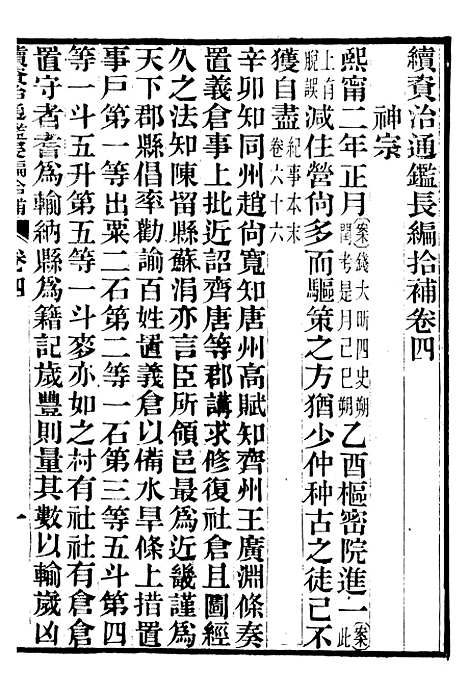 續資治通鑑長編拾補卷四
神宗
熙甯二年正月案錢大昕四史朔閏考是月己巳朔乙酉樞密院進一案此
上有脫誤減住營尙多而驅策之方猶少仲种古之徒已不
獲自盡紀事本末卷六十六
辛卯知同州趙尙寬知唐州高賦知齊州王廣淵條奏
置義倉事上批近詔齊唐等郡講求修復社倉且圖經
久之法知陳留縣蘇涓亦言臣所領邑最爲近畿謹爲
天下郡縣倡率勸諭百姓置義倉以備水旱條上措置
事戶第一等出粟二石第二等一石第三等五斗第四
等一斗五升第五等一斗麥亦如之村有社社有倉倉
置守者耆爲輸納縣爲籍記歲豐則量其數以輸歲凶
續資治通鑑長編拾補 卷四 一